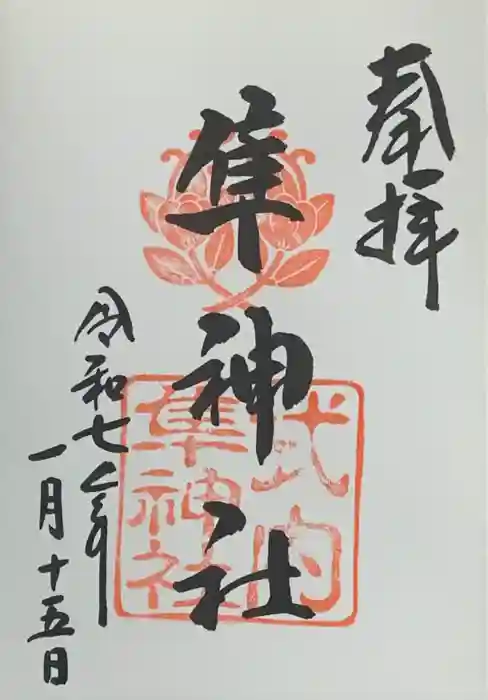 奉拝
隼神社
式内
隼神社
令和七年
一月十五日